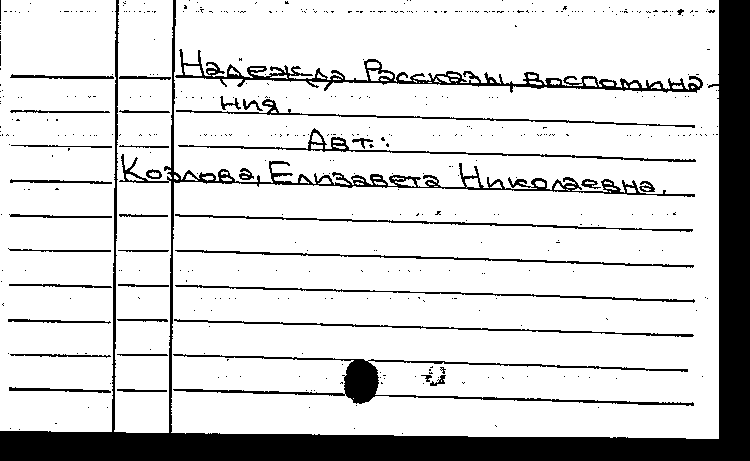 Надежда. Рассказы, воспомина-
ния.
Авт.:
Козлова, Елизавета Николаевна.